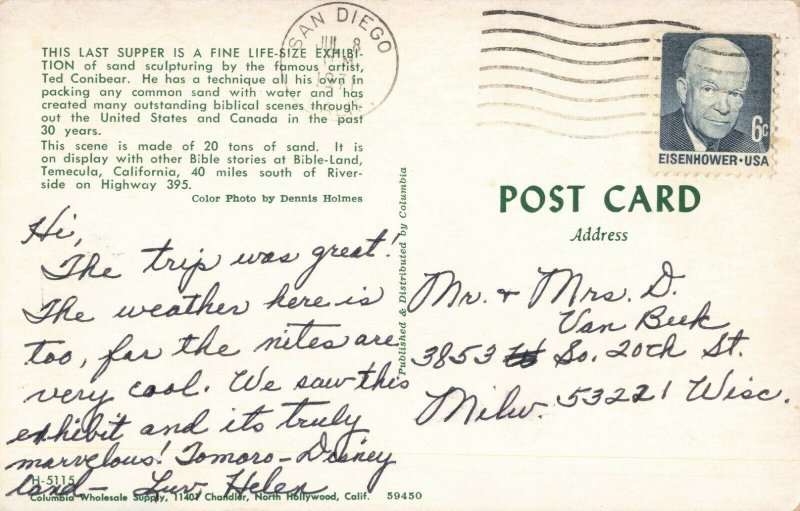 THIS LAST SUPPER IS A FINE LIFE-SIZE EXHIBI-
TION of sand sculpturing by the famous artist,
Ted Conibear. He has a technique all his own in
packing any common sand with water and has
created many outstanding biblical scenes through-
out the United States and Canada in the past
30 years.
This scene is made of 20 tons of sand. It is
on display with other Bible stories at Bible-Land,
Temecula, California, 40 miles south of River-
side on Highway 395.
Color Photo by Dennis Holmes
Hi,
The trip was great!
The weather here is
too, for the nites are
very cool. We saw this
exhibit and its truly
marvelous! Tomoro - Disney
land - Luv, Helen
H-5115
Columbia Wholesale Supply, 11401 Chandler, North Hollywood, Calif. 59450
Published & Distributed by Columbia
SAN DIEGO
8
6c
EISENHOWER·USA
POST CARD
Address
Mr. + Mrs. D.
Van Beek
3853 So. 20th St.
Milw. 53221 Wisc.